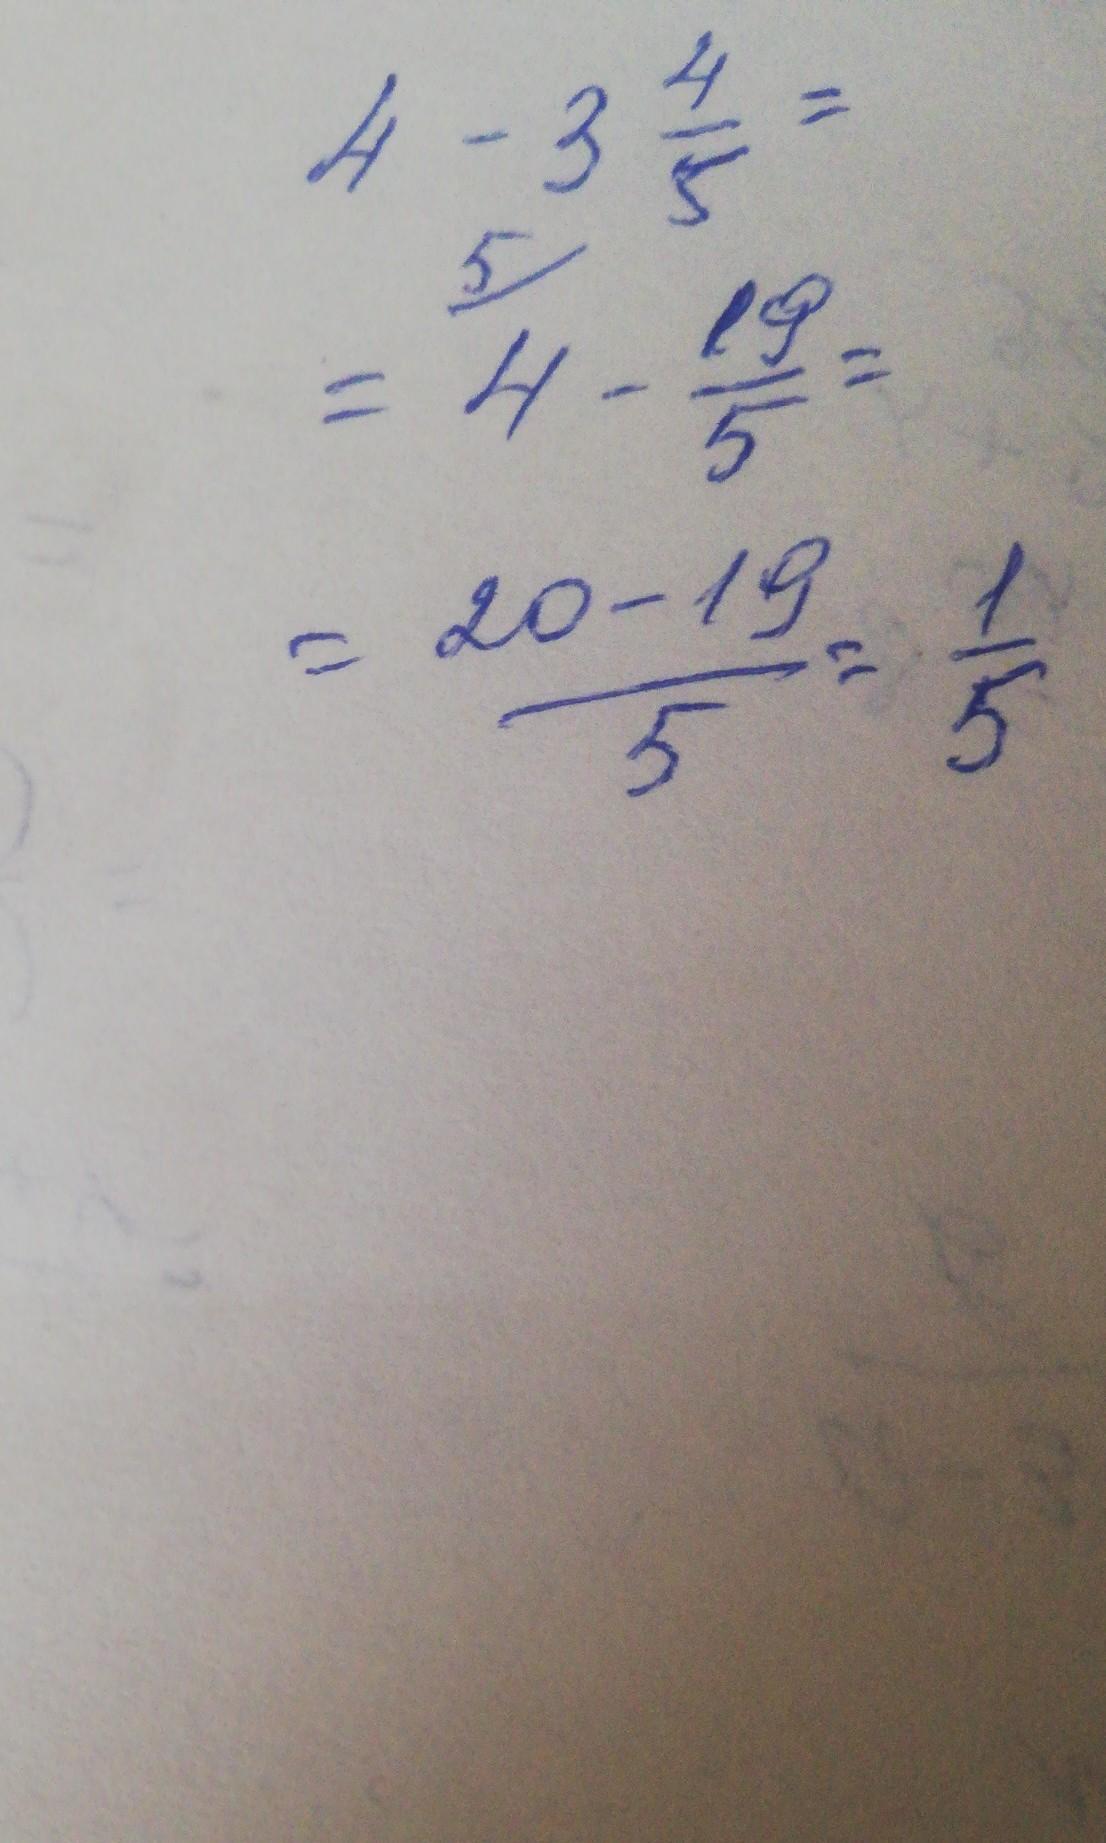 4 - 3 4/5 =
5/
= 4 - 19/5 =
= 20 - 19/5 = 1/5